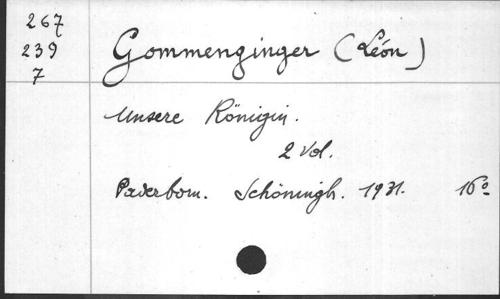 267
239
7
Gommenginger (Léon)
Unsere Königin.
2 Vol.
Paderborn. Schöningh. 1931. 16º